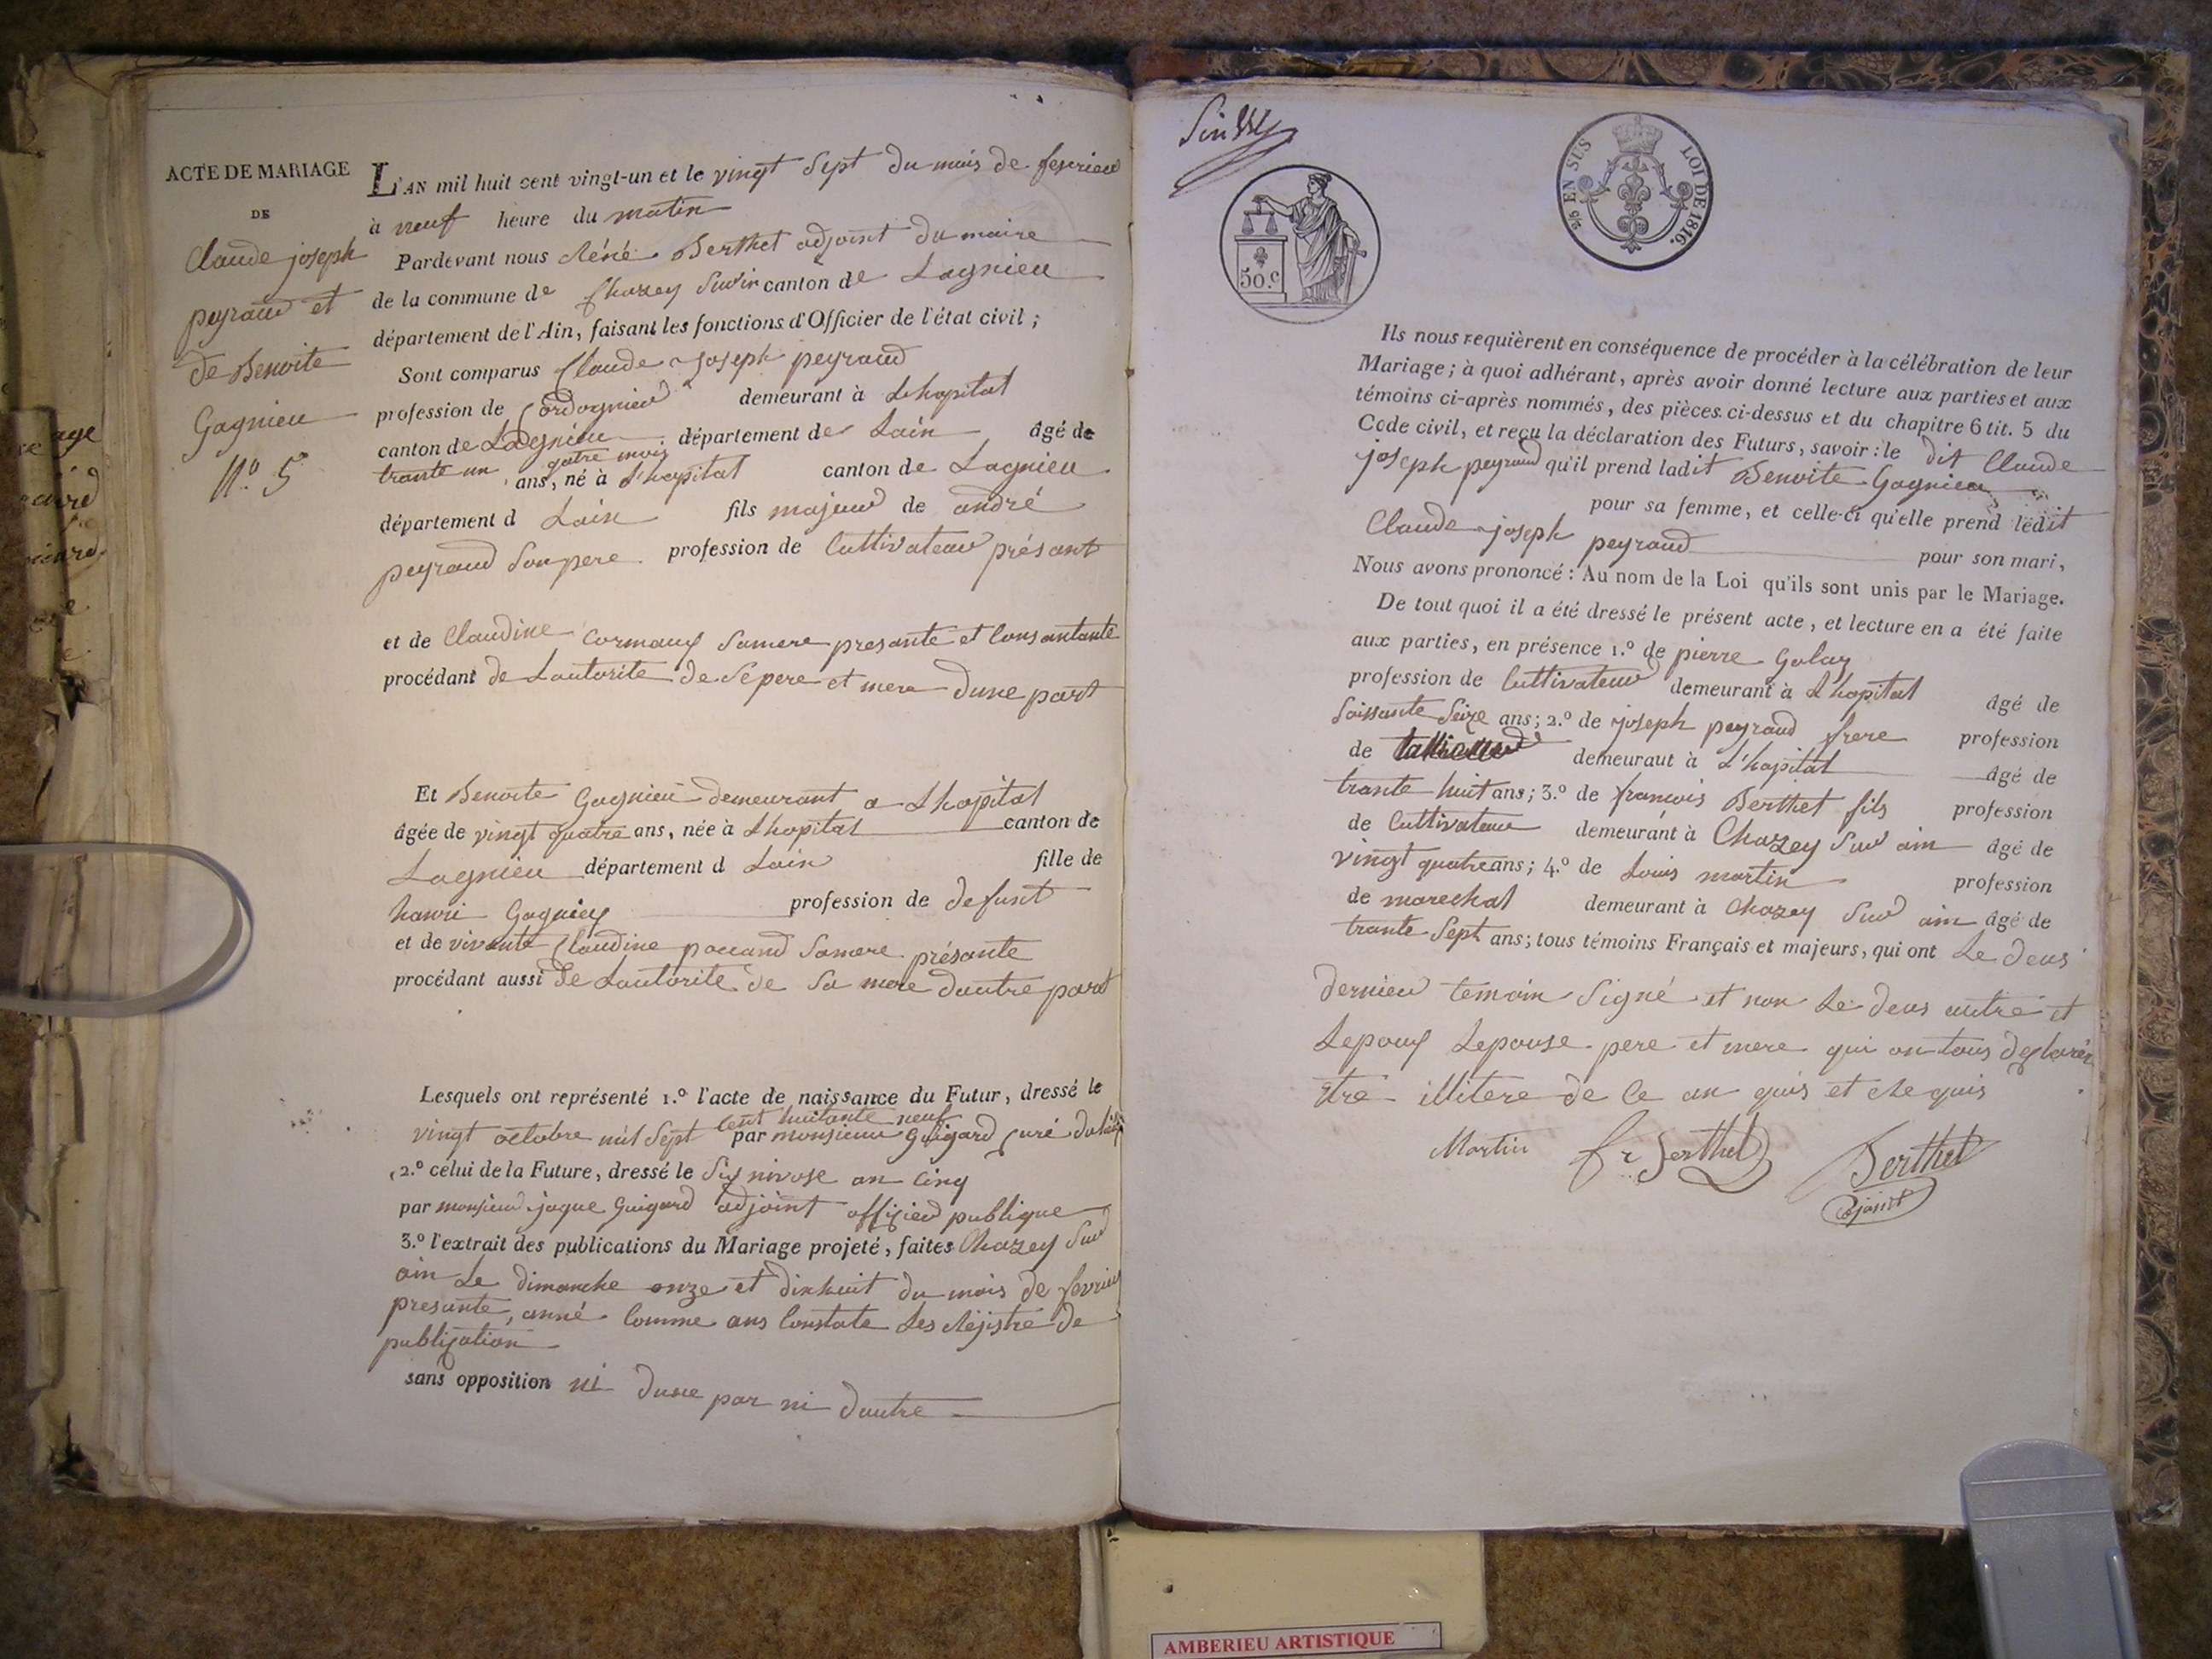 ACTE DE MARIAGE
DE
Claude joseph
peyraud et
de Benoite
Gagnieu
N.o 5
L'AN mil huit cent vingt-un et le vingt Sept du mois de fevrieu
à neuf heure du matin
Pardevant nous Réné Berthet adjoint du maire
de la commune de Chazey Sur in canton de Lagnieu
département de l'Ain, faisant les fonctions d'Officier de l'état civil ;
Sont comparus Claude Joseph peyraud
profession de Cordognieu demeurant à Lhopital
canton de Lagnieu département de Lain âgé de
quatre mois
trante un ans, né à L'hopital canton de Lagnieu
département d Lain fils majeur de andré
peyraud Son pere profession de Cultivateur présant
et de Claudine Cormaux Samere presante et Consantante
procédant de Lautorite de Se pere et mere dune part
Et Benoite Gagnieu demeurant a Lhopital
âgée de vingt quatre ans, née à Lhopital canton de
Lagnieu département d Lain fille de
hanri Gagnieu profession de defunt
et de vivante Claudine Samere présante
procédant aussi de Lautorite de Sa mere dautre part
Lesquels ont représenté 1.º l'acte de naissance du Futur, dressé le
Cent huitante neuf
vingt octobre mil Sept par monsieur Guigard Curé
2.º celui de la Future, dressé le Six nivose an Cinq
par monsieur jaque Guigard adjoint officier publique
3.º l'extrait des publications du Mariage projeté, faites Chazey Sur
ain Le dimanche onze et dixhuit du mois de fevrier
presante, anné Comme ans Constate Les Réjistre de
publication
sans opposition ni dune par ni dautre
EN SUS
LOI DE 1816.
50.c
Ils nous requièrent en conséquence de procéder à la célébration de leur
Mariage ; à quoi adhérant, après avoir donné lecture aux parties et aux
témoins ci-après nommés, des pièces ci-dessus et du chapitre 6 tit. 5 du
Code civil, et reçu la déclaration des Futurs, savoir : le dit Claude
joseph peyraud qu'il prend ladit Benoite Gagnieu
pour sa femme, et celle-ci qu'elle prend ledit
Claude joseph peyraud pour son mari,
Nous avons prononcé : Au nom de la Loi qu'ils sont unis par le Mariage.
De tout quoi il a été dressé le présent acte, et lecture en a été faite
aux parties, en présence 1.º de pierre Golay
profession de Cultivateur demeurant à Lhopital âgé de
Soissante Seize ans ; 2.º de joseph peyraud frere profession
de demeuraut à L'hopital âgé de
trante huit ans ; 3.º de francois Berthet fils profession
de Cultivateur demeurant à Chazey Sur ain âgé de
vingt quatre ans ; 4.º de Louis martin profession
de marechal demeurant à Chazey Sur ain âgé de
trante Sept ans ; tous témoins Français et majeurs, qui ont Le deus
dernieu temoin Signé et non Le deus autre et
Lepoux Lepouse pere et mere qui on tous
être illitere de Ce an quis et Requis
Martin fr Berthet Berthet
adjoint
AMBERIEU ARTISTIQUE